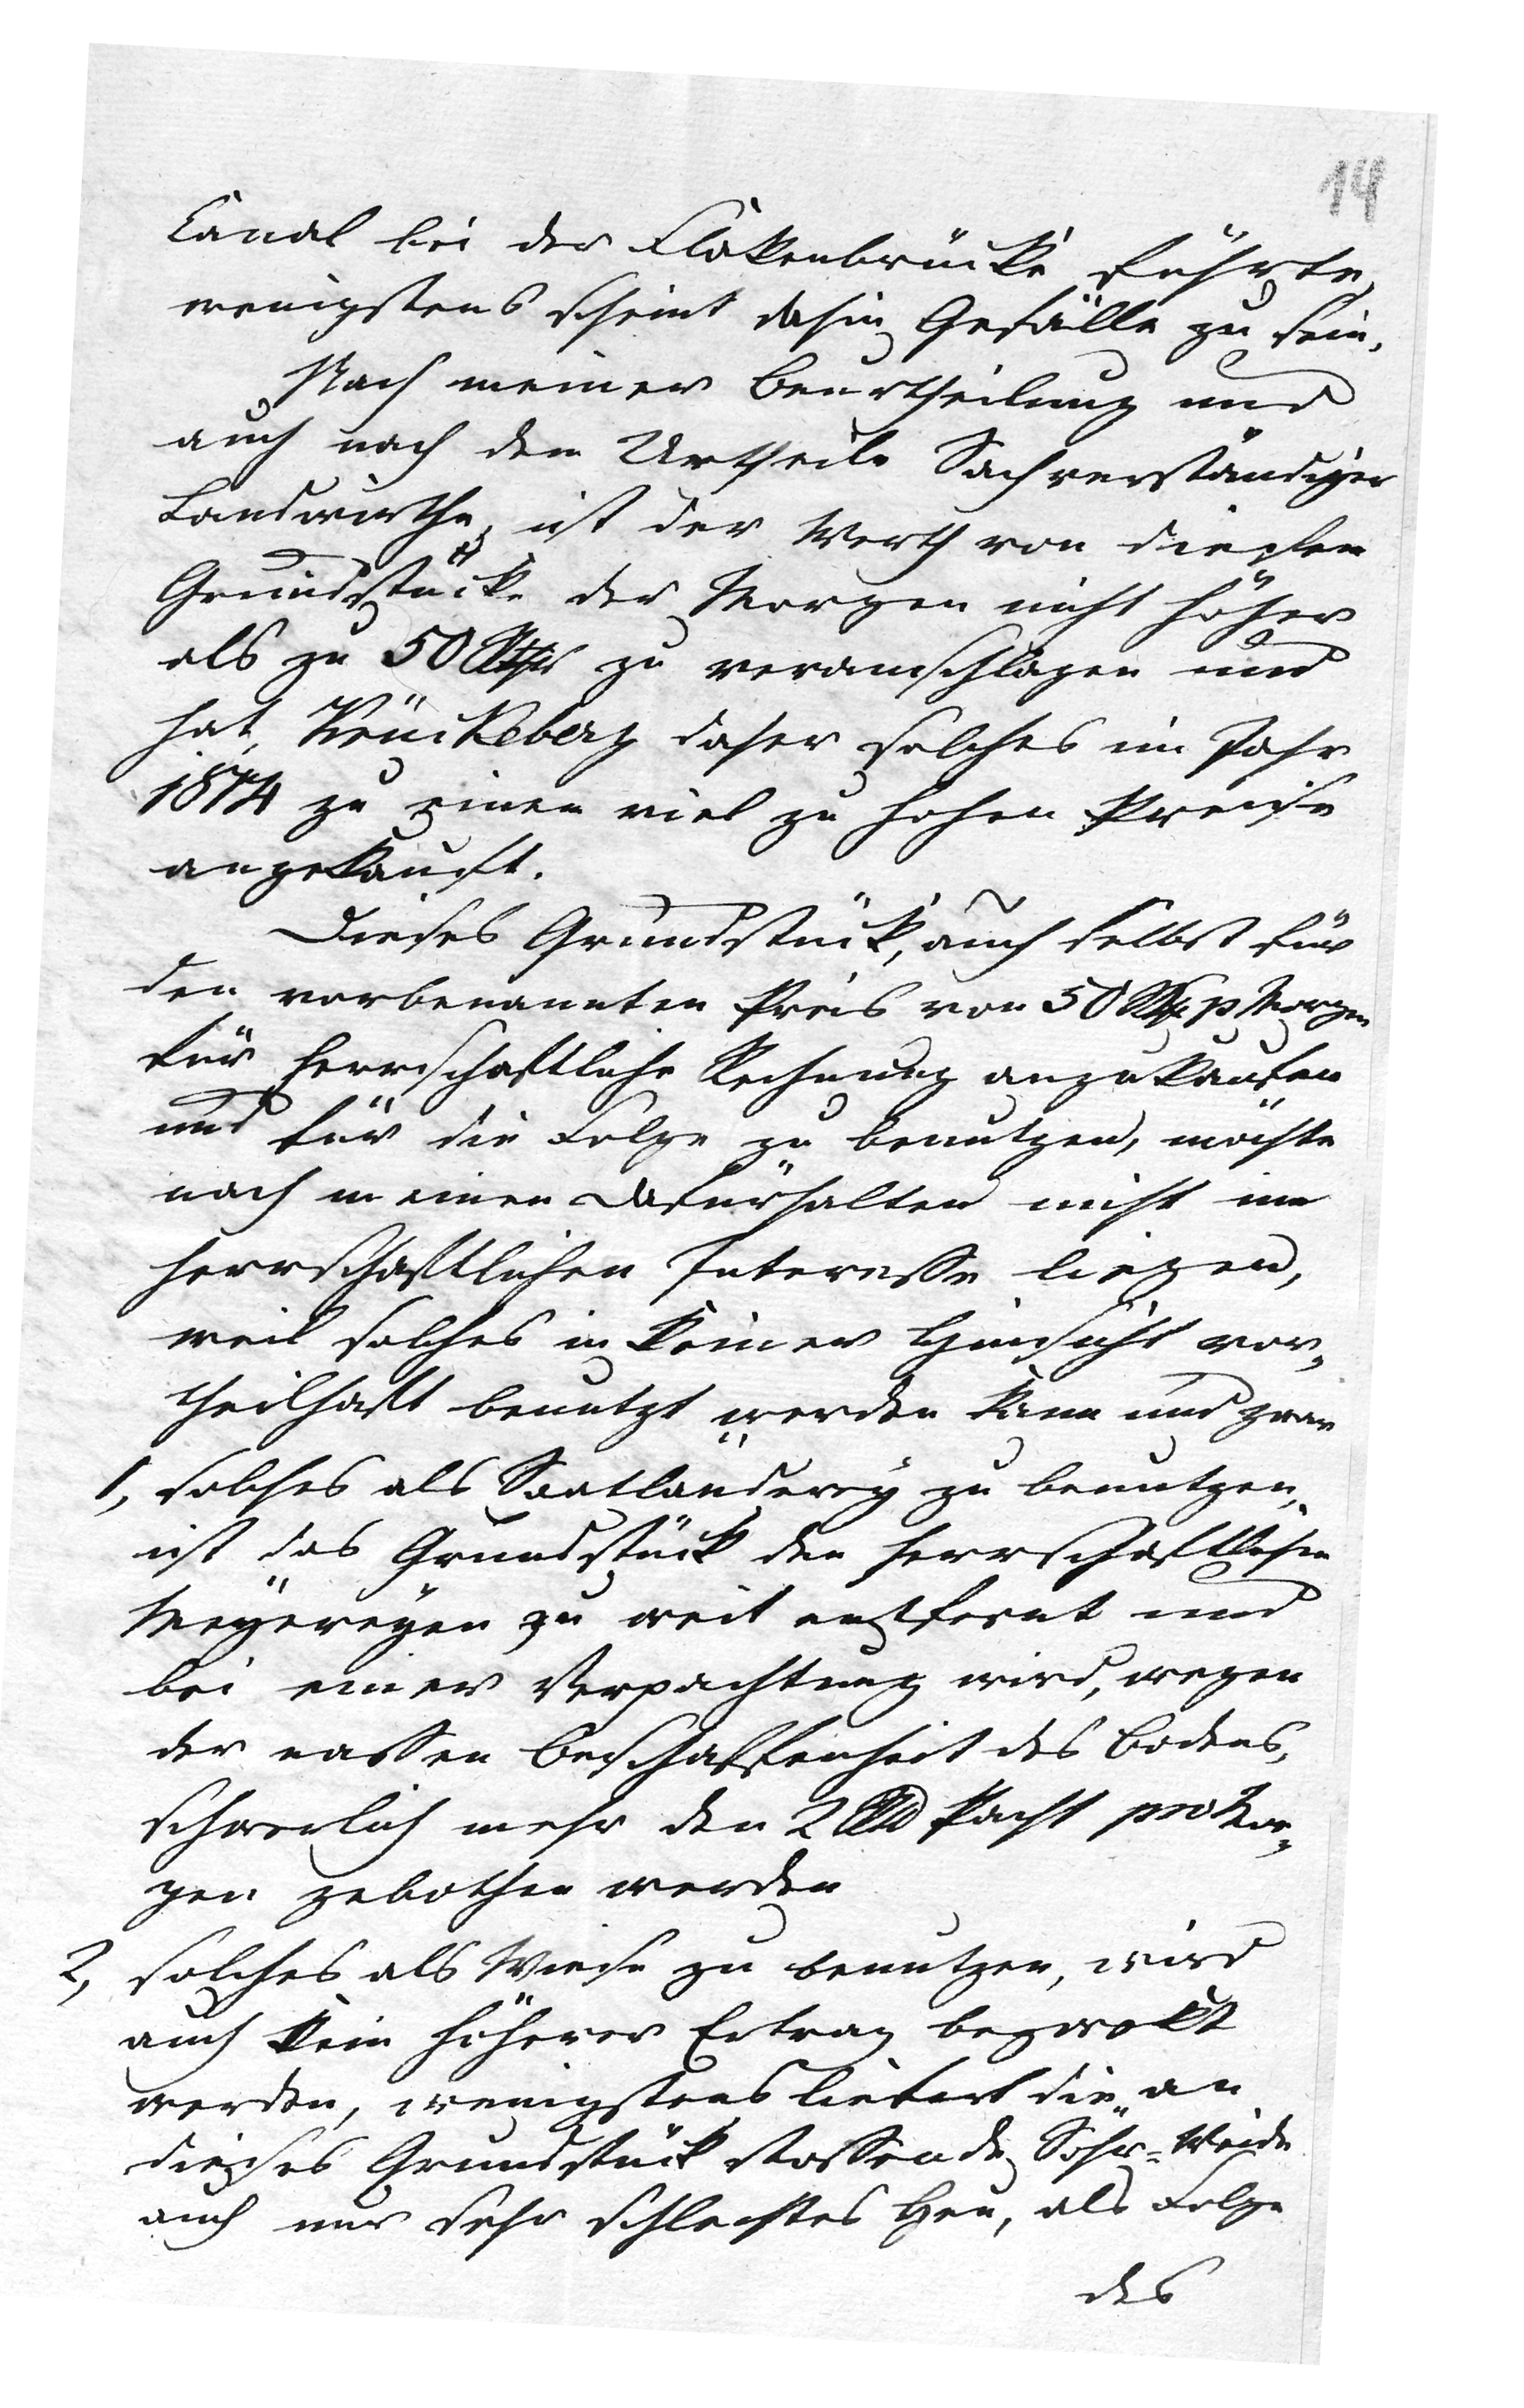 14
Canal bei der Flakenbrücke führte,
wenigstens scheint dahin Gefälle zu sein.
Nach meiner Beurtheilung und
auch nach dem Urtheile Sachverständiger
Landwirthe, ist der Werth von diesem
Grundstücke der Morgen nicht höher
als zu 50 Rthlr zu veranschlagen und
hat, Krückeberg daher solches im Jahr
1874 zu einem viel zu hohen Preise
angekauft.
Dieses Grundstück, auch selbst für
den vorbenannten Preis von 50 Rthlr p Morgen
für herrschaftliche Rechnung anzukaufen
und für die Folge zu benutzen, möchte
nach meinen Dafürhalten nicht im
herrschaftlichen Interesse liegen,
weil solches in keiner Hinsicht vor-
theilhaft benutzt werden kann und zwar
1, solches als Saatländerey zu benutzen,
ist das Grundstück den herrschaftlichen
Meyereyen zu weit entfernt und
bei einer Verpachtung wird, wegen
der nassen Beschaffenheit des Bodens,
schwerlich mehr den 2 Pacht pro Mor-
gen gebothen werden
2, solches als Wiese zu benutzen, wird
auch kein höherer Ertrag bezwekt
werden, wenigstens liefert die an
dieses Grundstück stossende Söhr-Weide
auch nur sehr schlechtes Heu, als Folge
des